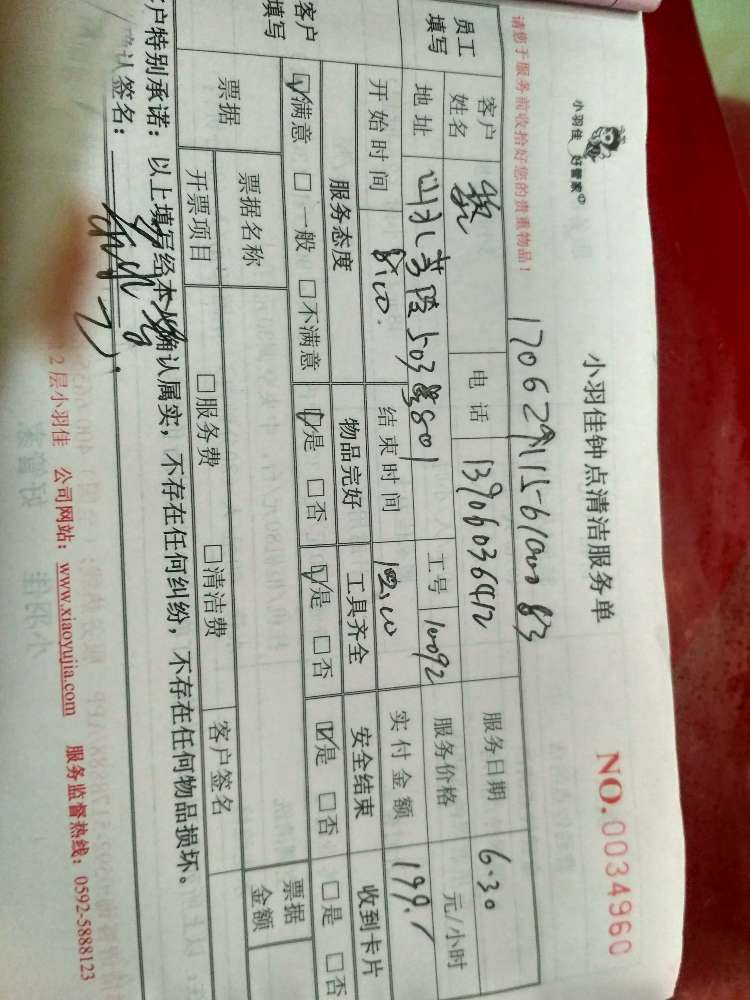 小羽佳 好管家
小羽佳钟点清洁服务单
NO.0034960
请您于服务前收拾好您的贵重物品!
员工填写
客户姓名
电话
13906036412
服务日期
6.30
地址
503
801
工号
10092
服务价格
元/小时
开始时间
8:00
结束时间
12:00
实付金额
客户填写
服务态度
物品完好
工具齐全
安全结束
收到卡片
☑满意 □一般 □不满意
☑是 □否
☑是 □否
☑是 □否
□是 □否
票据
票据名称
票据金额
开票项目
□服务费 □清洁费
客户签名
户特别承诺:以上填写经本人确认属实,不存在任何纠纷,不存在任何物品损坏。
确认签名:
2层小羽佳 公司网站:www.xiaoyujia.com 服务监督热线:0592-5888123